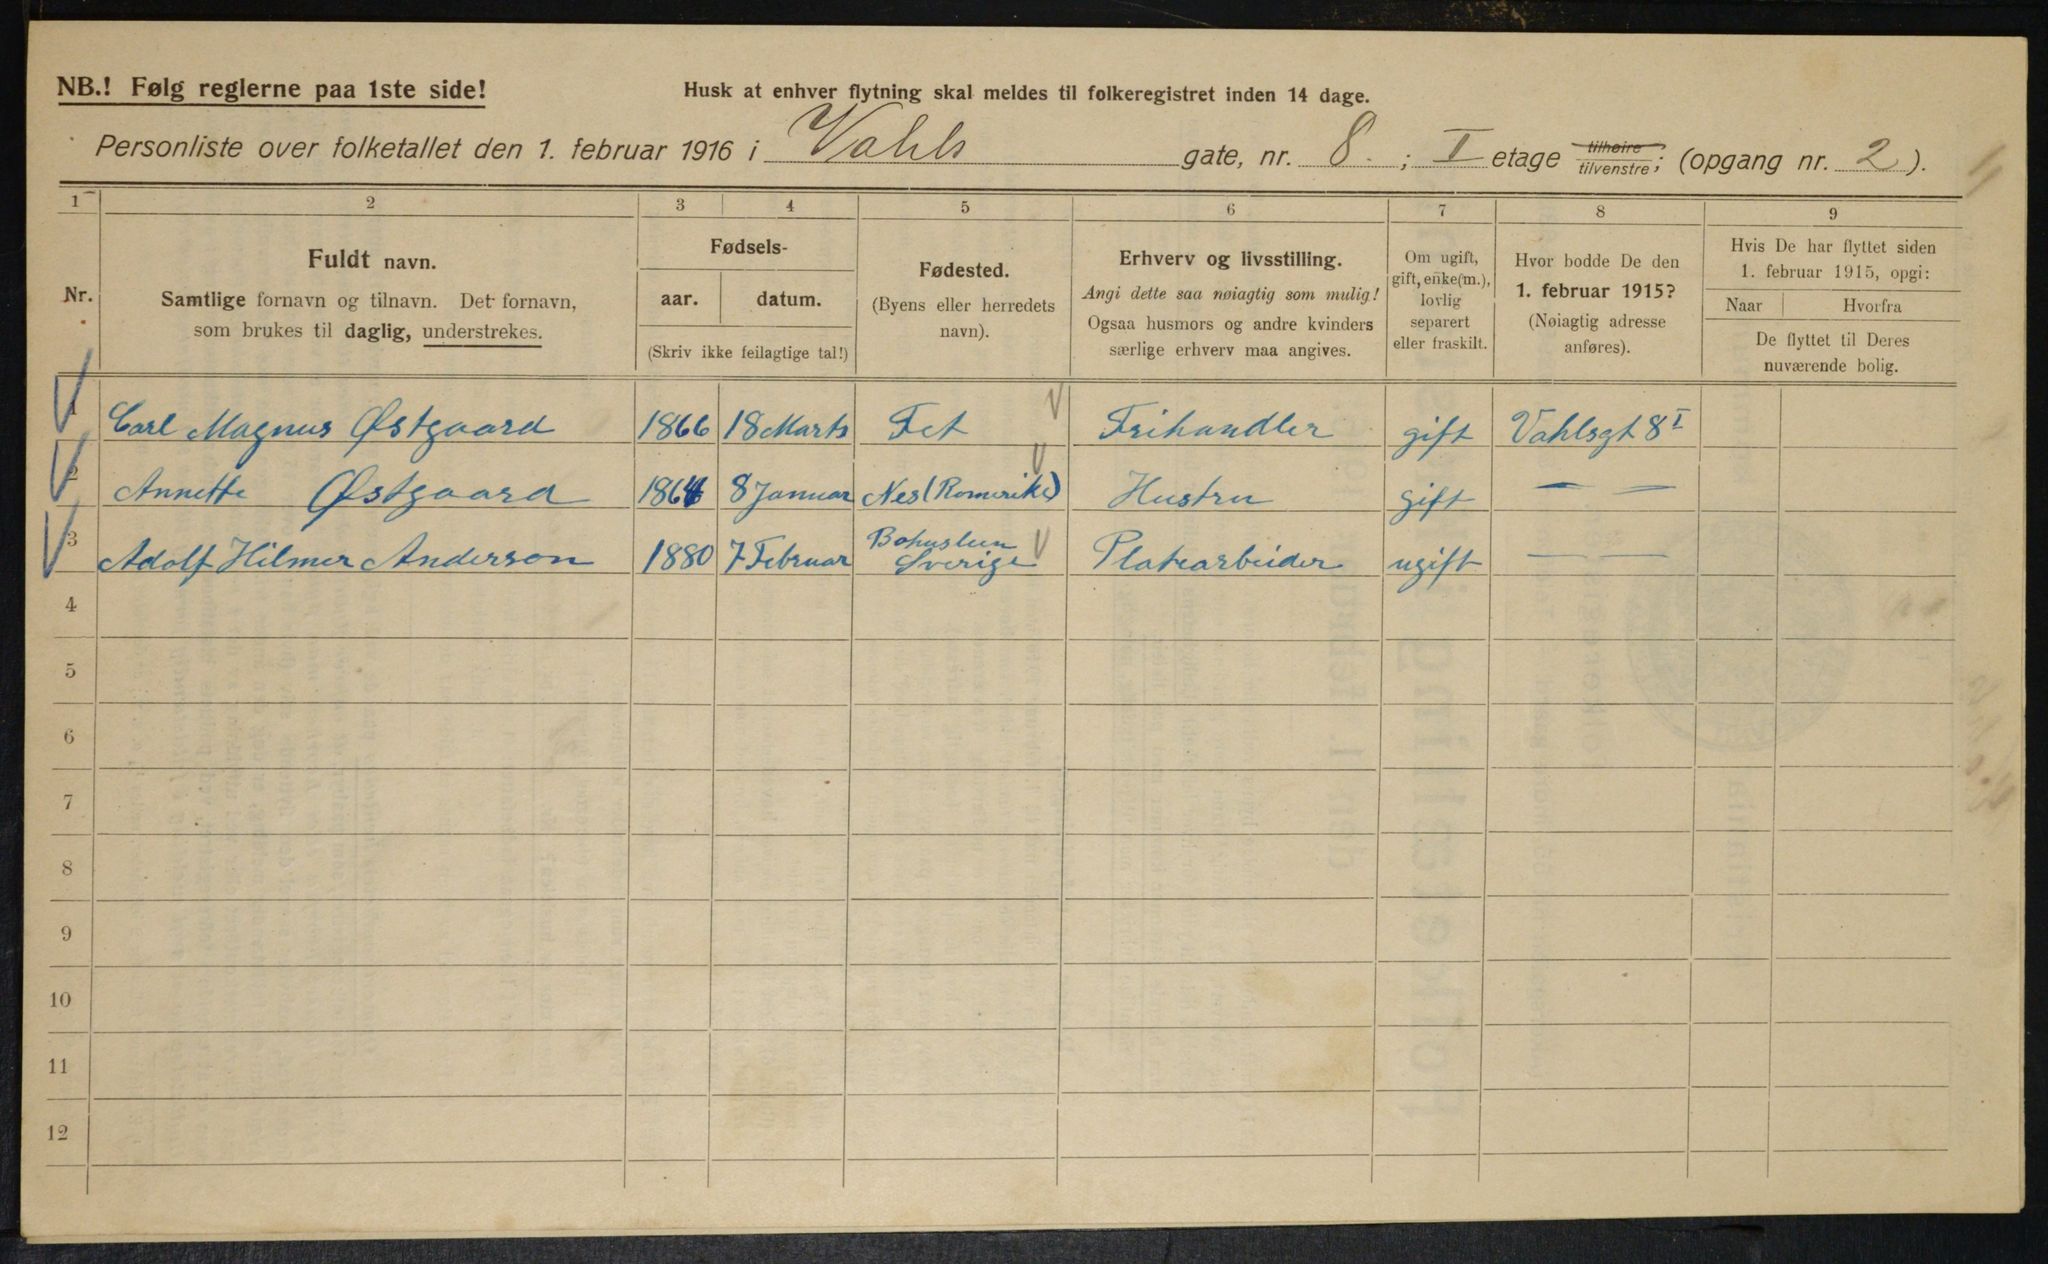 NB.! Følg reglerne paa 1ste side!
Husk at enhver flytning skal meldes til folkeregistret inden 14 dage.
Personliste over folketallet den 1. februar 1916 i Vahls gate, nr. 8. ; I etage tilhøire tilvenstre; (opgang nr. 2).
1 2 3 4 5 6 7 8 9
Nr.
Fuldt navn.
Samtlige fornavn og tilnavn. Det fornavn,
som brukes til daglig, understrekes.
Fødsels-
aar. datum.
(Skriv ikke feilagtige tal!)
Fødested.
(Byens eller herredets
navn).
Erhverv og livsstilling.
Angi dette saa nøiagtig som mulig!
Ogsaa husmors og andre kvinders
særlige erhverv maa angives.
Om ugift,
gift, enke(m.),
lovlig
separert
eller fraskilt.
Hvor bodde De den
1. februar 1915?
(Nøiagtig adresse
anføres).
Hvis De har flyttet siden
1. februar 1915, opgi:
Naar Hvorfra
De flyttet til Deres
nuværende bolig.
1 Carl Magnus Østgaard 1866 18 Marts Fet Frihandler gift Vahlsgt 8 I
2 Annette Østgaard 1864 8 Januar Nes (Romerike) Hustru gift — —
3 Adolf Hilmer Anderson 1880 7 Februar Bohuslen Sverige Platearbeider ugift — —
4
5
6
7
8
9
10
11
12